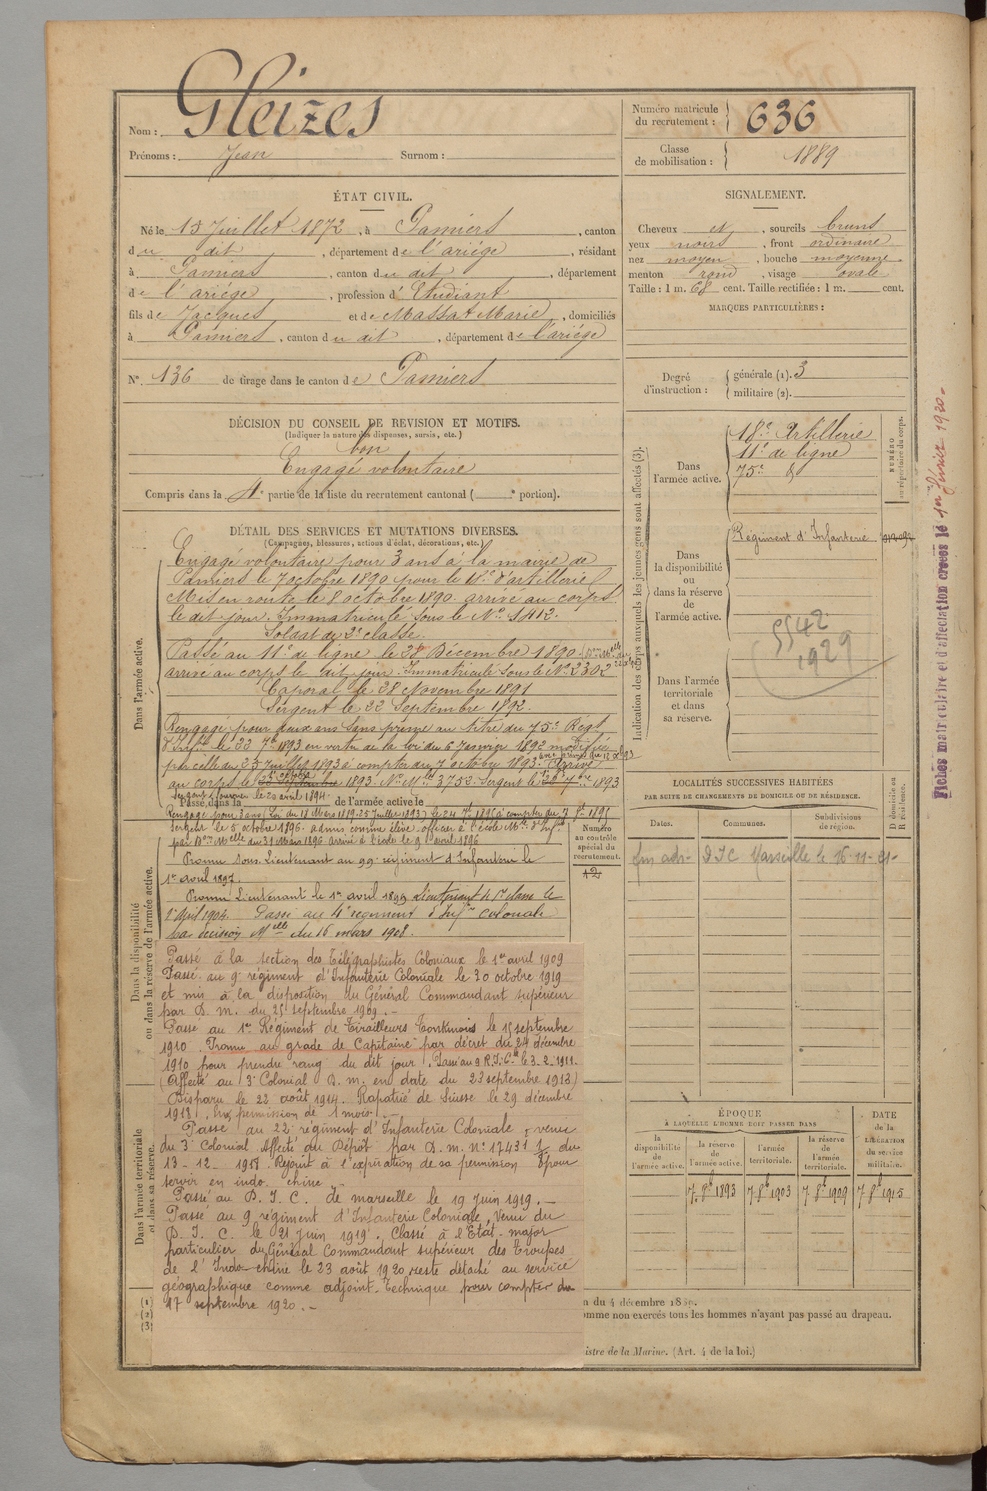 Nom : Gleizes
Prénoms : Jean Surnom :
Numéro matricule du recrutement : 636
Classe de mobilisation : 1889
ÉTAT CIVIL.
Né le 13 Juillet 1872, à Pamiers, canton
du dit, département de l'ariége, résidant
à Pamiers, canton du dit, département
de l'ariége, profession d'Etudiant
fils de Jacques et de Massat Marie, domiciliés
à Pamiers, canton du dit, département de l'ariége
N° 136 de tirage dans le canton de Pamiers
SIGNALEMENT.
Cheveux et, sourcils bruns
yeux noirs, front ordinaire
nez moyen, bouche moyenne
menton rond, visage ovale
Taille : 1 m. 68 cent. Taille rectifiée : 1 m. cent.
MARQUES PARTICULIÈRES :
Degré d'instruction : générale (1). 3
militaire (2).
DÉCISION DU CONSEIL DE REVISION ET MOTIFS.
(Indiquer la nature des dispenses, sursis, etc.)
bon
Engagé volontaire
Compris dans la 4e partie de la liste du recrutement cantonal ( e portion).
Indication des corps auxquels les jeunes gens sont affectés (3).
Dans l'armée active.
18e Artillerie
11e de ligne
75e d
NUMÉRO au répertoire du corps.
Dans la disponibilité ou dans la réserve de l'armée active.
Régiment d'Infanterie
5542
1929
Dans l'armée territoriale et dans sa réserve.
DÉTAIL DES SERVICES ET MUTATIONS DIVERSES.
(Campagnes, blessures, actions d'éclat, décorations, etc.)
Dans l'armée active.
Engagé volontaire pour 3 ans à la mairie de
Pamiers le 7 octobre 1890 pour le 18e d'artillerie
Mis en route le 8 octobre 1890. arrivé au corps
le dit jour. Immatriculé sous le No 5412.
Soldat de 2e classe.
Passé au 11e de ligne le 28 Décembre 1890
arrivé au corps le dit jour. Immatriculé sous le No 2302
Caporal le 28 Novembre 1891
Sergent le 22 Septembre 1892.
Rengagé pour deux ans sans prime au titre du 75e Regt
d'Infie le 22 7bre 1893 en vertu de la loi du 6 Janvier 1892 modifiée
par celle du 25 Juillet 1893 à compter du 7 octobre 1893. Arrivé
au corps le octobre 1893. No Mle 3752. Sergent le 7bre 1893
Sergent fourrier le 20 avril 1894.
Passé dans la de l'armée active le
Rengagé pour 3 ans (Loi du 18 Mars 1889-25 Juillet 1893) le 24 7bre 1895 à compter du 7 8bre 1895
Sergent le 5 octobre 1896. admis comme élève officier à l'école Mre d'Infie
par Don Melle du 31 Mars 1896 arrivé à l'école le 9 avril 1896
Promu Sous-Lieutenant au 99e régiment d'Infanterie le
1er avril 1897.
Promu Lieutenant le 1er avril 1899 Lieutenant de 1e classe le
2 avril 1904. Passé au 4e régiment d'Infie coloniale
par décision Melle du 16 mars 1908.
Numéro au contrôle spécial du recrutement.
12
Dans la disponibilité ou dans la réserve de l'armée active.
Passé à la section des Télégraphistes Coloniaux le 1er avril 1909
Passé au 9e régiment d'Infanterie Coloniale le 20 octobre 1919
et mis à la disposition du Général Commandant supérieur
par D. m. du 25 septembre 1909.-
Passé au 1er Régiment de Tirailleurs Tonkinois le 15 septembre
1910. Promu au grade de Capitaine par décret du 24 décembre
1910 pour prendre rang du dit jour. Passé au 9 R.I.Cle le 3-2-1911.
(Affecté au 3e Colonial D. m. en date du 23 septembre 1913)
Disparu le 22 août 1914. Rapatrié de Suisse le 29 décembre
1918. En permission de 1 mois.
Passé au 22e régiment d'Infanterie Coloniale, venu
du 3e Colonial Affecté au Dépôt par D. m. No 17431 1/8 du
13-12-1918. Rejoint à l'expiration de sa permission pour
servir en indo-chine.-
Passé au D. I. C. de marseille le 19 Juin 1919.-
Passé au 9 régiment d'Infanterie Coloniale, Venu du
D. I. C. le 21 Juin 1919. Classé à l'Etat-major
particulier du Général Commandant supérieur des Troupes
de l'Indo-chine le 23 août 1920 reste détaché au service
géographique comme adjoint-Technique pour compter du
17 septembre 1920.-
Dans l'armée territoriale et dans sa réserve.
(1)
(2)
(3)
LOCALITÉS SUCCESSIVES HABITÉES
PAR SUITE DE CHANGEMENTS DE DOMICILE OU DE RÉSIDENCE.
Dates. Communes. Subdivisions de région. D domicile ou R résidence.
D I C Marseille le 16-11-21-
ÉPOQUE
À LAQUELLE L'HOMME DOIT PASSER DANS
la disponibilité de l'armée active. la réserve de l'armée active. l'armée territoriale. la réserve de l'armée territoriale.
DATE de la LIBÉRATION du service militaire.
7 8bre 1893 7 8bre 1903 7 8bre 1909 7 8bre 1915
n du 4 décembre 1889.
omme non exercés tous les hommes n'ayant pas passé au drapeau.
istre de la Marine. (Art. 4 de la loi.)
Fiches matriculaire et d'affectation créées le 1er février 1920.